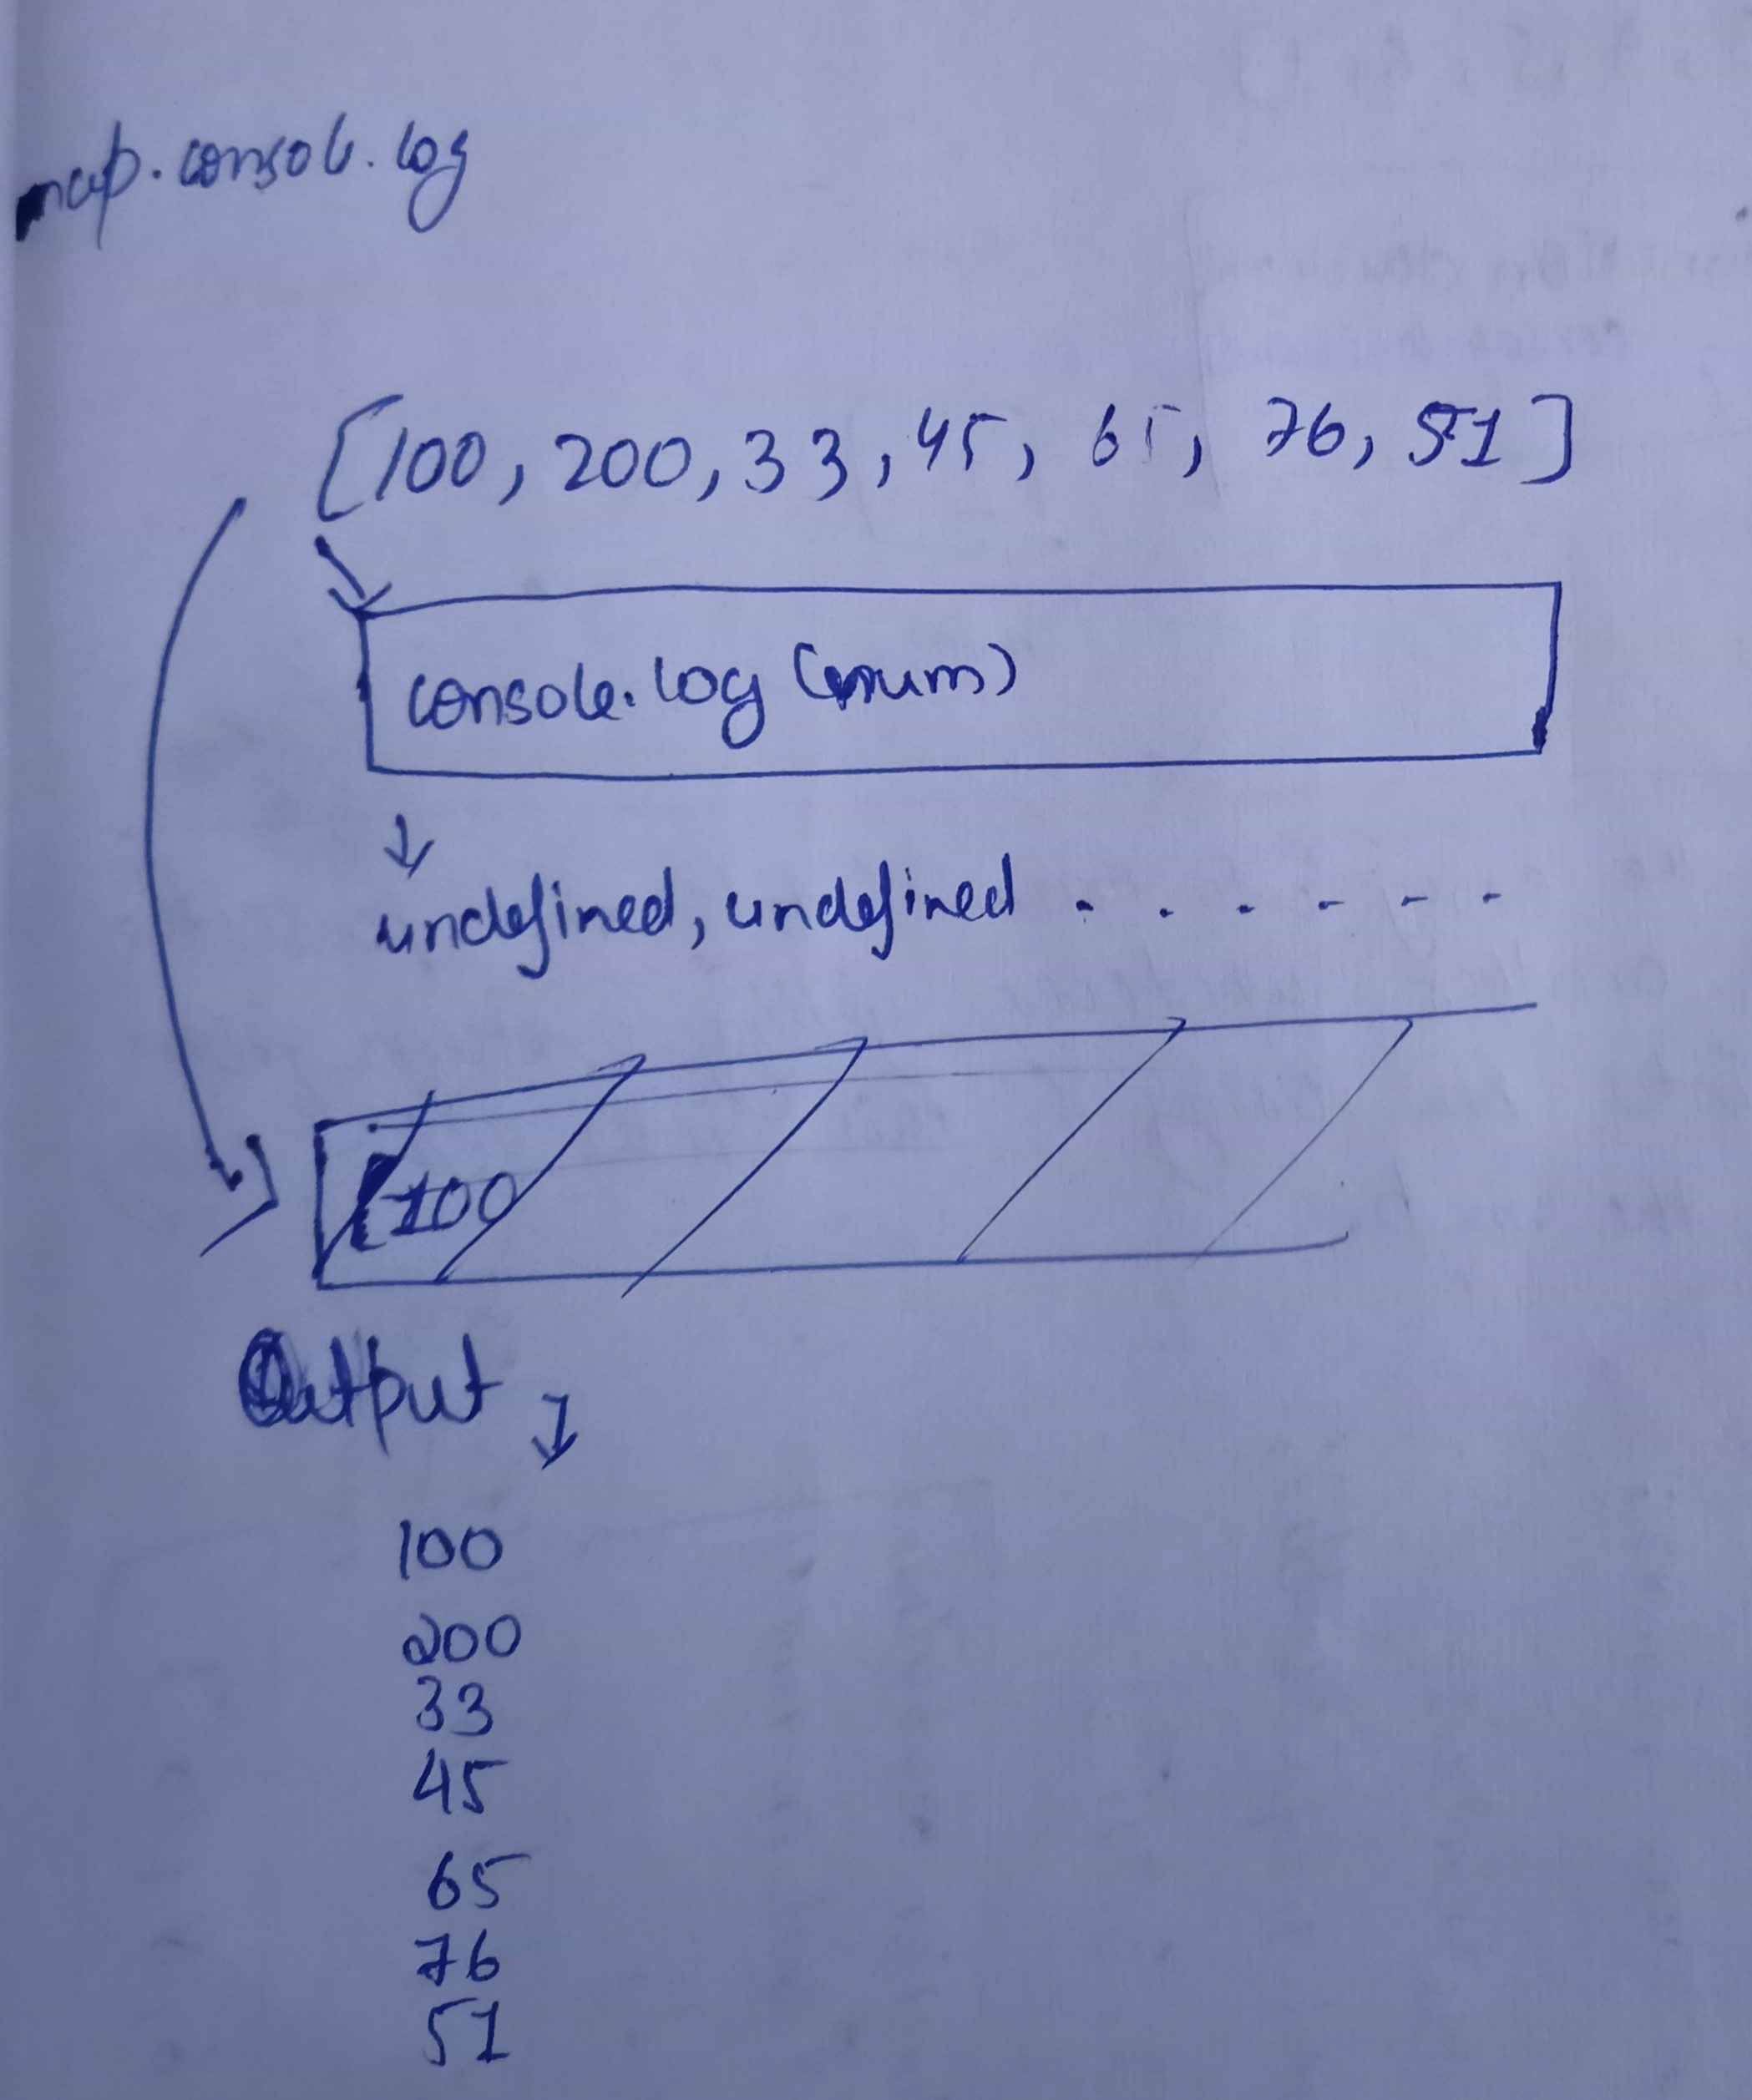 map.console.log
[100, 200, 33, 45, 65, 76, 51]
console.log (num)
↓
undefined, undefined . . . - - -
[100
Output ↓
100
200
33
45
65
76
51